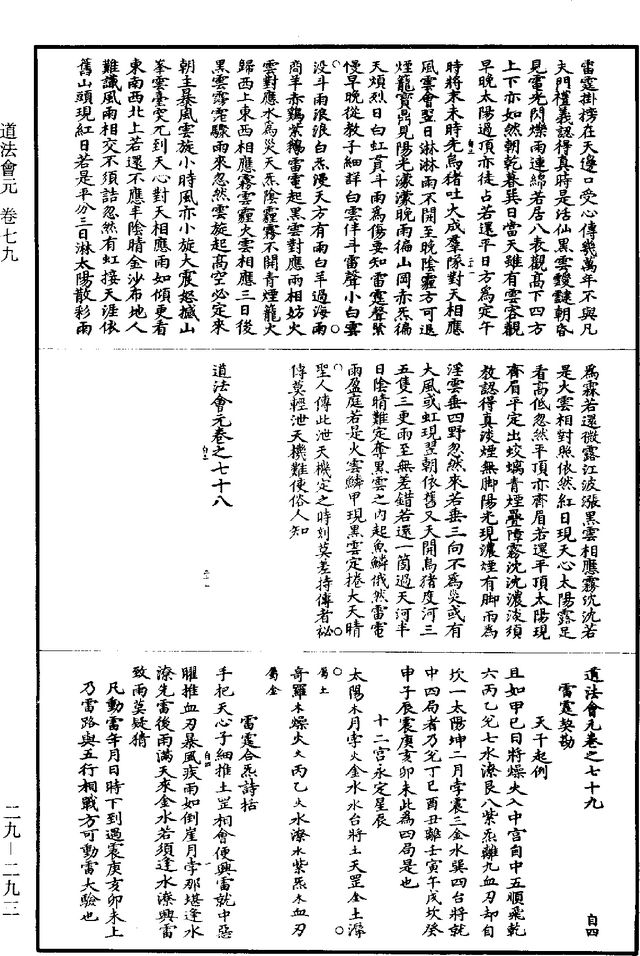 道法會元 卷七九
二九—二九三
雷霆掛榜在天邊口受心傳幾萬年不與凡
夫門禮義認得真時是活仙黑雲靉靆朝昏
見電光閃爍雨連綿若居八表觀高下四方
上下亦如然朝乾暮巽日當天雖有雲客觀
早晚太陽過頂亦徒占若還平日方為定午
時將來未時先烏猪吐大成羣隊對天相應
風雲會翌日淋淋雨不開至晚陰霾方可退
煙籠寶鼎見陽光濃濛晚雨徧山岡赤炁徧
天煩烈日白虹貫斗雨為傷要知雷霆聲緊
慢早晚從教子細詳白雲伴斗雷聲小白雲
沒斗雨浪浪白炁漫天方有雨白羊過海雨
商羊赤鷄紫鵝雷電起黑雲對應雨相妨火
雲對應水為災天炁陰霾霧不開青煙籠火
歸西上東西相應霧雲霾火雲相應三日後
黑雲霶霈驟雨來忽然雲旋起高空必定來
朝主暴風雲旋小時風亦小旋大震怒撼山
峯雲臺突兀到天心對天相應雨如傾更看
東南西北上若還不應半陰晴金沙布地人
難識風雨相交不須詰忽然有虹接天涯依
舊山頭現紅日若是平分三日淋太陽散彩雨
為霖若還微露江波漲黑雲相應霧沉沉若
是火雲相對照依然紅日現天心太陽露足
看高低忽然平頂亦齊眉若還平頂太陽現
齊眉平定出蛟螭青煙疊障霧沈沈濃淡須
教認得真淡煙無脚陽光現濃煙有脚雨為
淫雲垂四野忽然來若垂三向不為災或有
大風或虹現翌朝依舊又天開烏猪度河三
五隻三更雨至無差錯若還一箇過天河半
日陰晴難定奪黑雲之內起魚鱗俄然雷電
雨盈庭若是火雲鱗甲現黑雲定捲大天晴
聖人傳此泄天機定之時刻莫差持傳者祕
傳莫輕泄天機難使俗人知
道法會元卷之七十八
道法會元卷之七十九 自四
雷霆契勘
天干起例
且如甲己日將燥火入中宮自中五順飛乾
六丙乙兌七水潦艮八紫炁離九血刃却自
坎一太陽坤二月孛震三金水巽四台將就
中四局者乃兌丁巳酉丑離壬寅午戌坎癸
申子辰震庚亥卯未此為四局是也
十二宮永定星辰
太陽木月孛火金水水台將土天罡金土潯
屬土
奇羅木燥火火丙乙火水潦水紫炁木血刃
屬金
雷霆合炁詩括
手把天心子細推土罡相會便興雷就中惡
曜推血刃暴風疾雨如倒崖月孛那堪逢水
潦先雷後雨滿天來金水若須逢水潦興雷
致雨莫疑猜
凡動雷年月日時下到遇震庚亥卯未上
乃雷路與五行相戰方可動雷大驗也